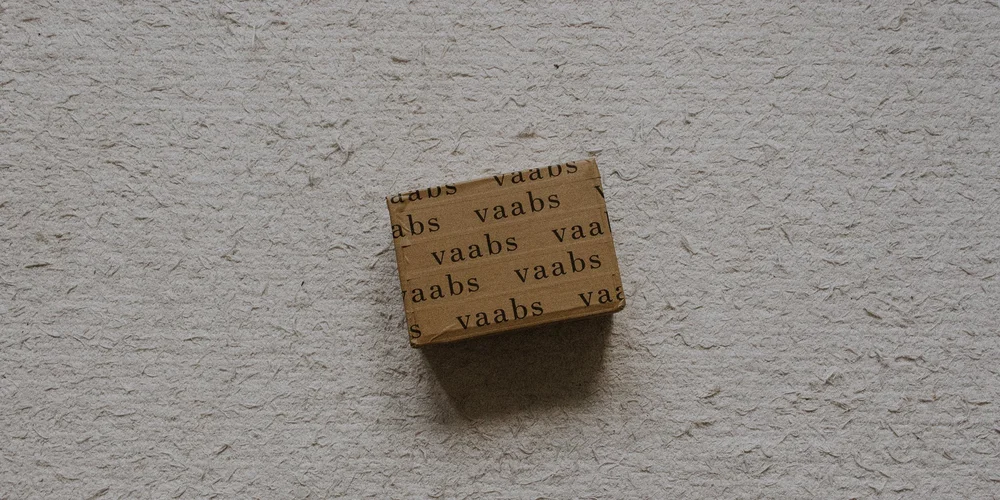 aabs vaabs
abs vaabs v
vaabs vaa
vaabs vaabs
s vaabs vaa